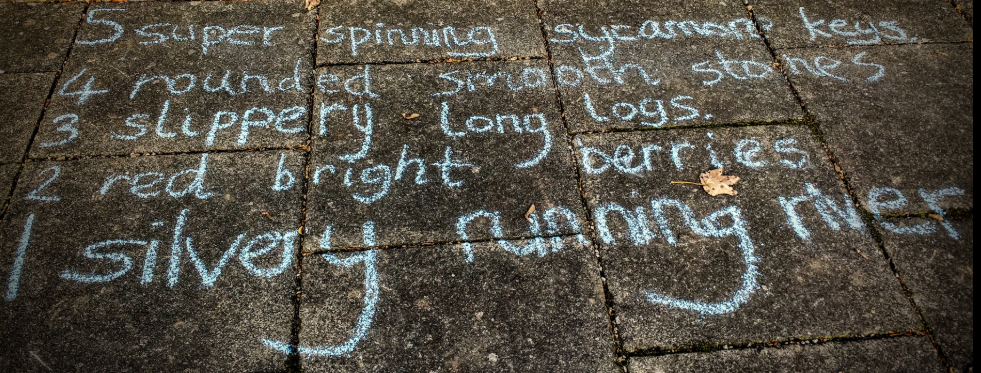 5 super spinning sycamore keys.
4 rounded smooth stones
3 slippery long logs.
2 red bright berries
1 silvery running river